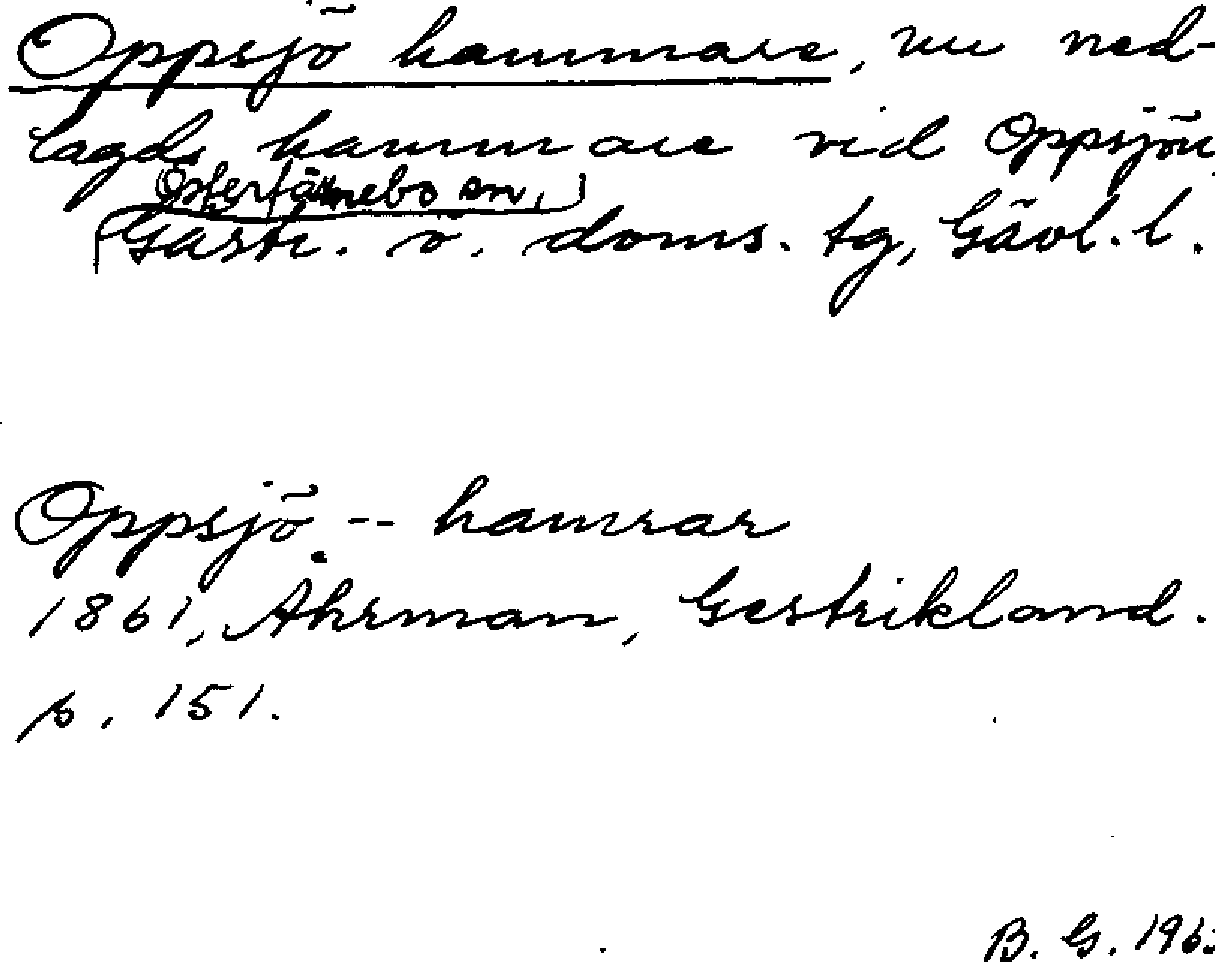 Oppsjö hammare, nu ned-
lagda hammare vid Oppsjön,
Österfärnebo sn,
Gästr. ö. doms. tg, Gävl. l.
Oppsjö -- hamrar
1861, Åhrman, Gestrikland.
s. 151.
B. G.